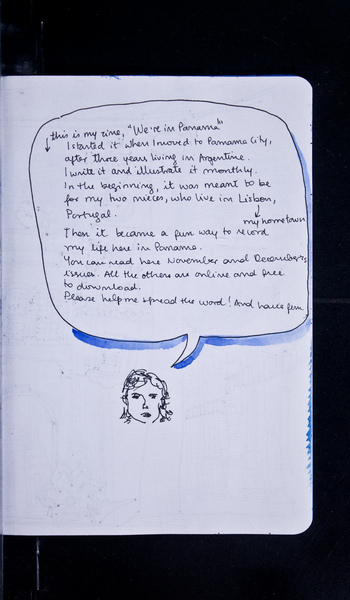 this is my zine, "We're in Panama"
I started it when I moved to Panama City,
after three years living in Argentine.
I write it and illustrate it monthly.
In the beginning, it was meant to be
for my two nieces, who live in Lisbon,
Portugal.
my hometown
Then it became a fun way to record
my life here in Panama.
You can read here November and December's
issues. All the others are online and free
to download.
Please help me spread the word! And have fun.